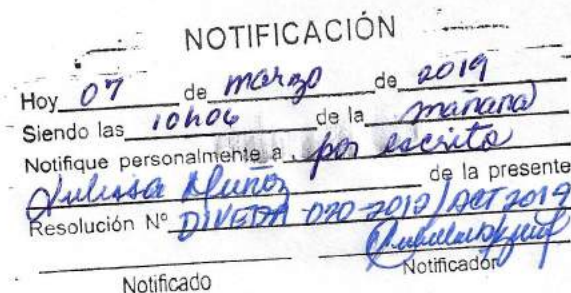 NOTIFICACIÓN
Hoy 07 de marzo de 2019
Siendo las 10h06 de la mañana
Notifique personalmente a por escrito
Julissa Muñoz de la presente
Resolución Nº DIVETPA-020-2019/ACT 2019
Notificado Notificador